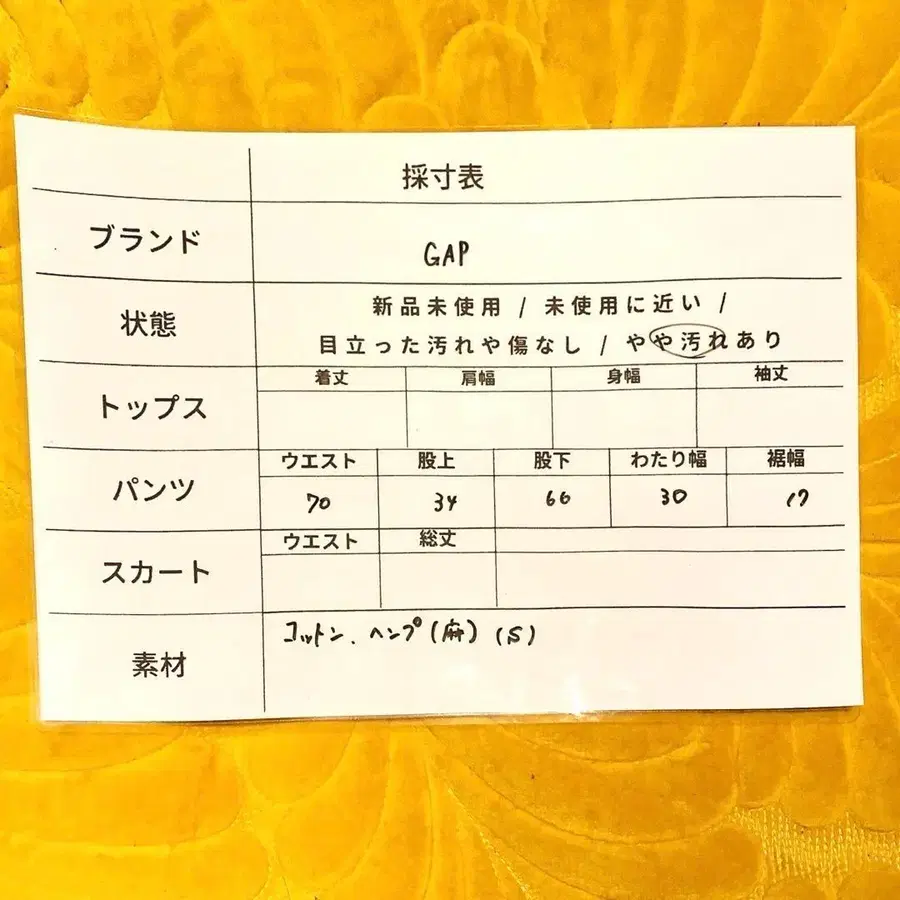 採寸表
ブランド
GAP
状態
新品未使用 / 未使用に近い /
目立った汚れや傷なし / やや汚れあり
トップス
着丈 肩幅 身幅 袖丈
パンツ
ウエスト 股上 股下 わたり幅 裾幅
70 34 66 30 17
スカート
ウエスト 総丈
素材
コットン、ヘンプ(麻) (S)